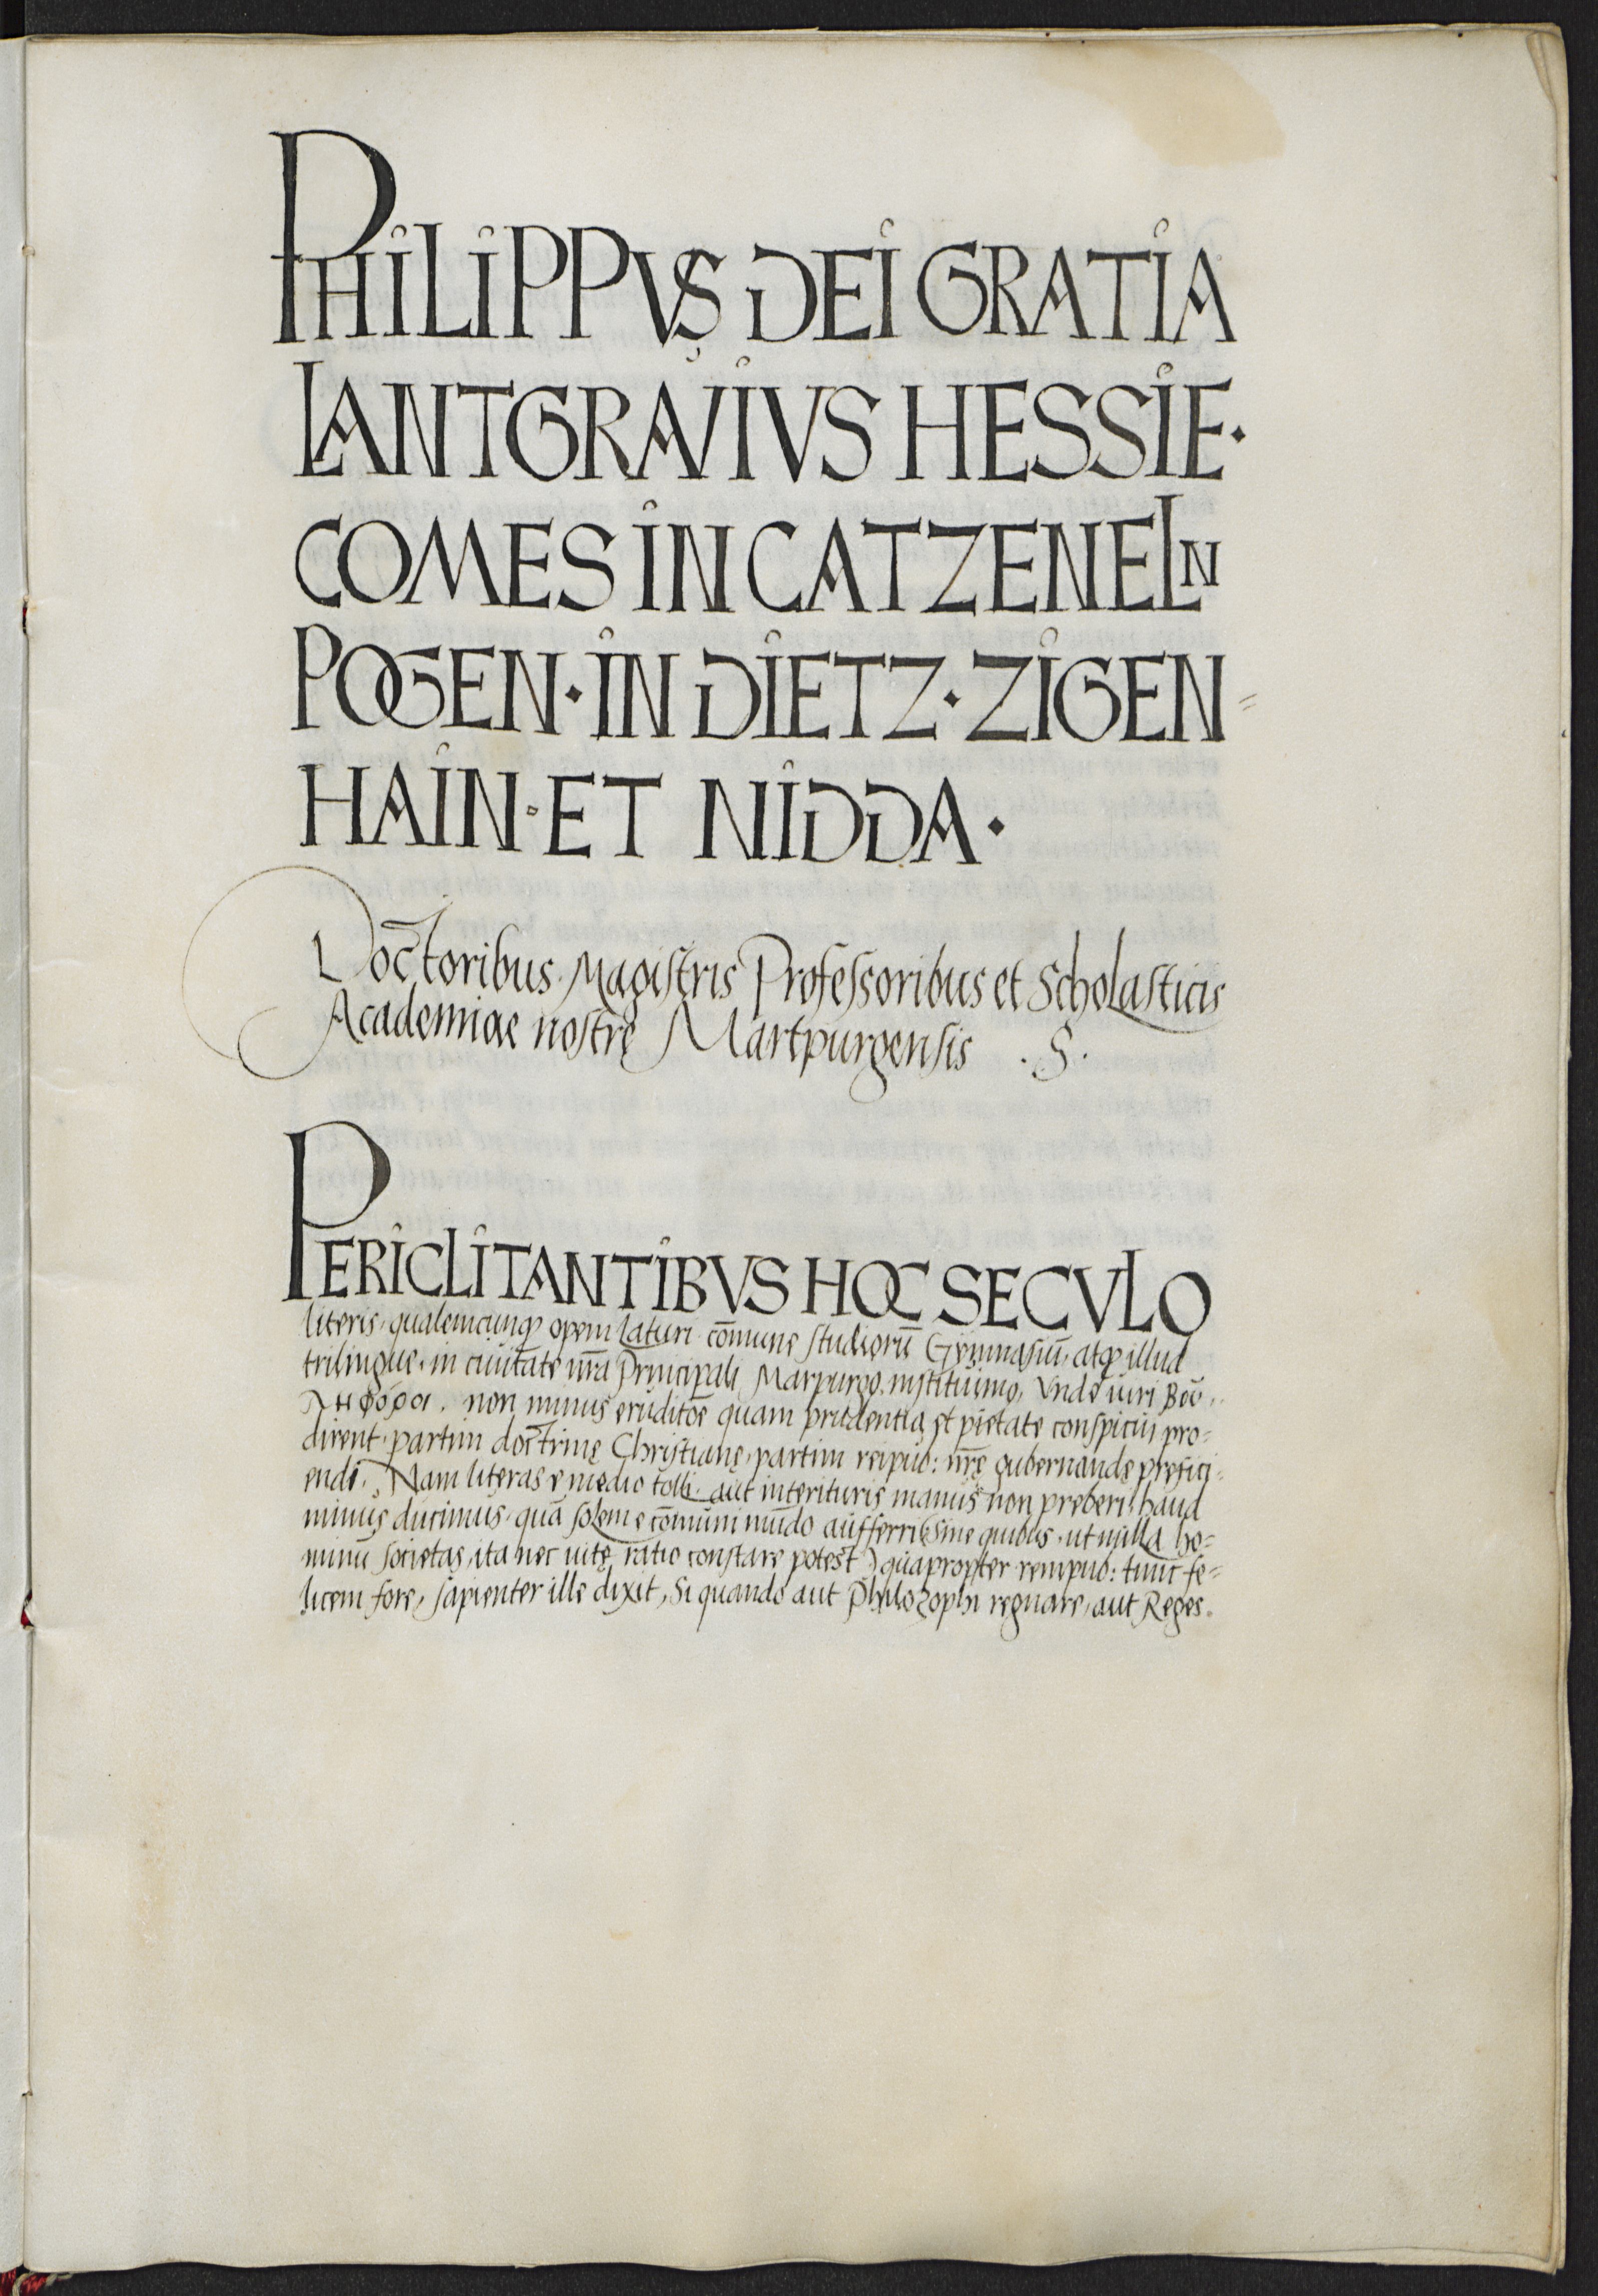 PHILIPPVS DEI GRATIA
LANTGRAVIVS HESSIE·
COMES IN CATZENELN
POGEN · IN DIETZ · ZIGEN=
HAIN · ET NIDDA ·
Doctoribus Magistris Professoribus et Scholasticis
Academiae nostrę Martpurgensis . S .
PERICLITANTIBVS HOC SECVLO
literis, qualemcunqꝫ opem laturi cōmune studiorū Gymnasiū, atqꝫ illud
trilingue, in ciuitate nr̄a Principali Marpurgo, instituimꝰ, Vnde uiri
non minus eruditōe quam prudentia et pietate conspicui pro=
dirent, partim doctrinę Christianę, partim reipub: nr̄ę gubernandę prefici=
endi. Nam literas e medio tolli, aut interituris manus non preberi, haud
minus ducimus, quā solem e cōmuni mūdo aufferri (sine quibus, ut nulla ho=
minū societas, ita nec uitę ratio constare potest) quapropter rempub: tunc fe=
licem fore, sapienter ille dixit, Si quando aut Philozophi regnare, aut Reges